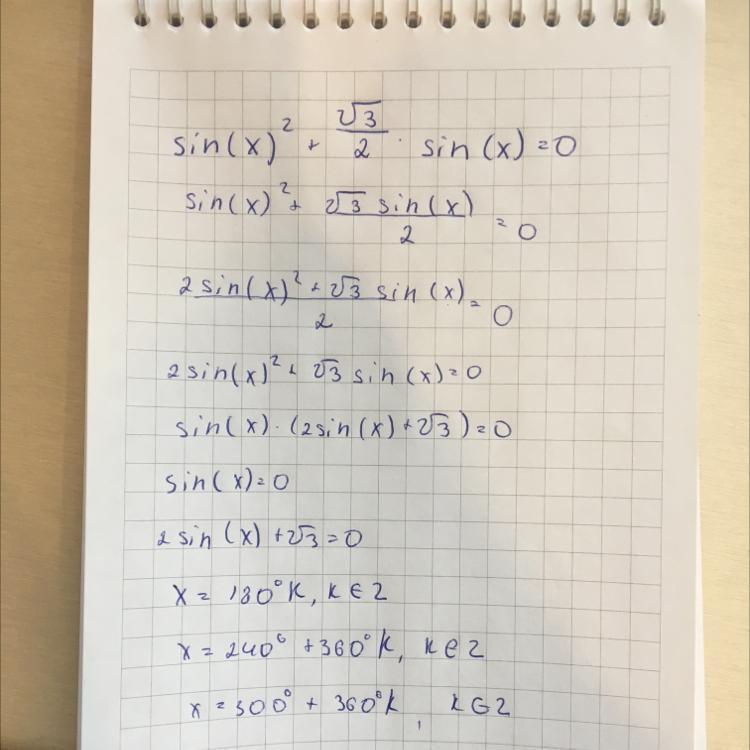 sin(x)² + √3/2 · sin(x) = 0
sin(x)² + √3 sin(x)/2 = 0
2sin(x)² + √3 sin(x)/2 = 0
2sin(x)² + √3 sin(x) = 0
sin(x) · (2sin(x) + √3) = 0
sin(x) = 0
2sin(x) + √3 = 0
x = 180°K, K ∈ Z
x = 240° + 360°K, K ∈ Z
x = 300° + 360°K, K ∈ Z